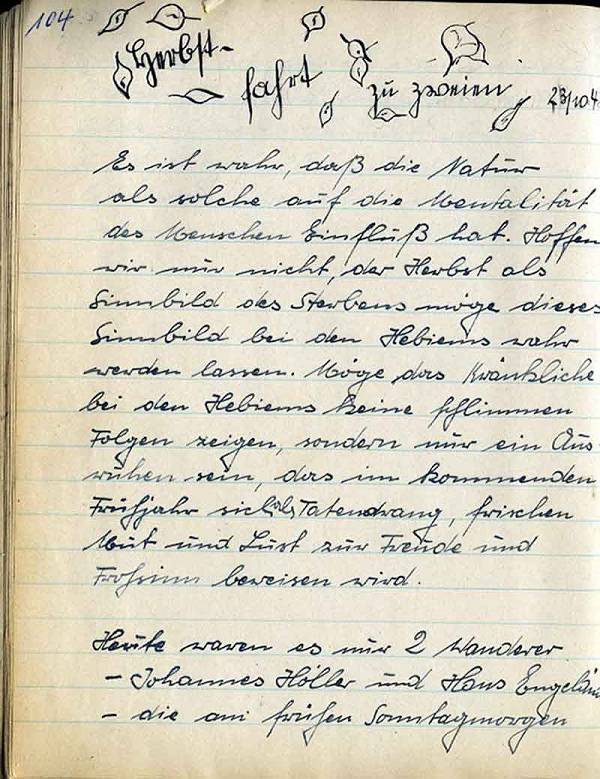 104
Herbst-
fahrt zu zweien 23/10 4
Es ist wahr, daß die Natur
als solche auf die Mentalität
des Menschen Einfluß hat. Hoffen
wir nur nicht, der Herbst als
Sinnbild des Sterbens möge dieses
Sinnbild bei den Hebiems wahr
werden lassen. Möge das Kränkliche
bei den Hebiems keine schlimmen
Folgen zeigen, sondern nur ein Aus-
ruhen sein, das im kommenden
Frühjahr sich als Tatendrang, frischen
Mut und Lust zur Freude und
Frohsinn beweisen wird.
Heute waren es nur 2 Wanderer
- Johannes Höller und Hans
- die am frühen Sonntagmorgen